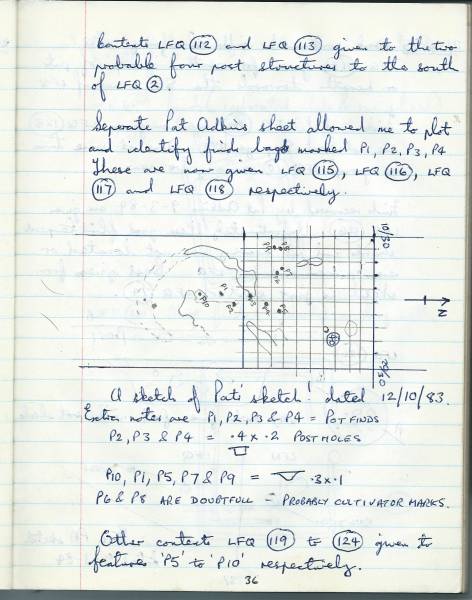 Contexts LFQ 112 and LFQ 113 given to the two
probable four post structures to the south
of LFQ 2.
Seperate Pat Adkins sheet allowed me to plot
and identify finds bags marked P1, P2, P3, P4
These are now given LFQ 115, LFQ 116, LFQ
117 and LFQ 118 respectively.
10/50
P10
P1
P2
P3
P4
P5
P7
P8
N
A sketch of Pat's sketch! dated 12/10/83.
Extra notes are P1, P2, P3 & P4 = POT FINDS
P2, P3 & P4 = .4 x .2 POST HOLES
P10, P1, P5, P7 & P9 = .3 x .1
P6 & P8 ARE DOUBTFULL - PROBABLY CULTIVATOR MARKS.
Other contexts LFQ 119 to 124 given to
features 'P5' to 'P10' respectively.
36